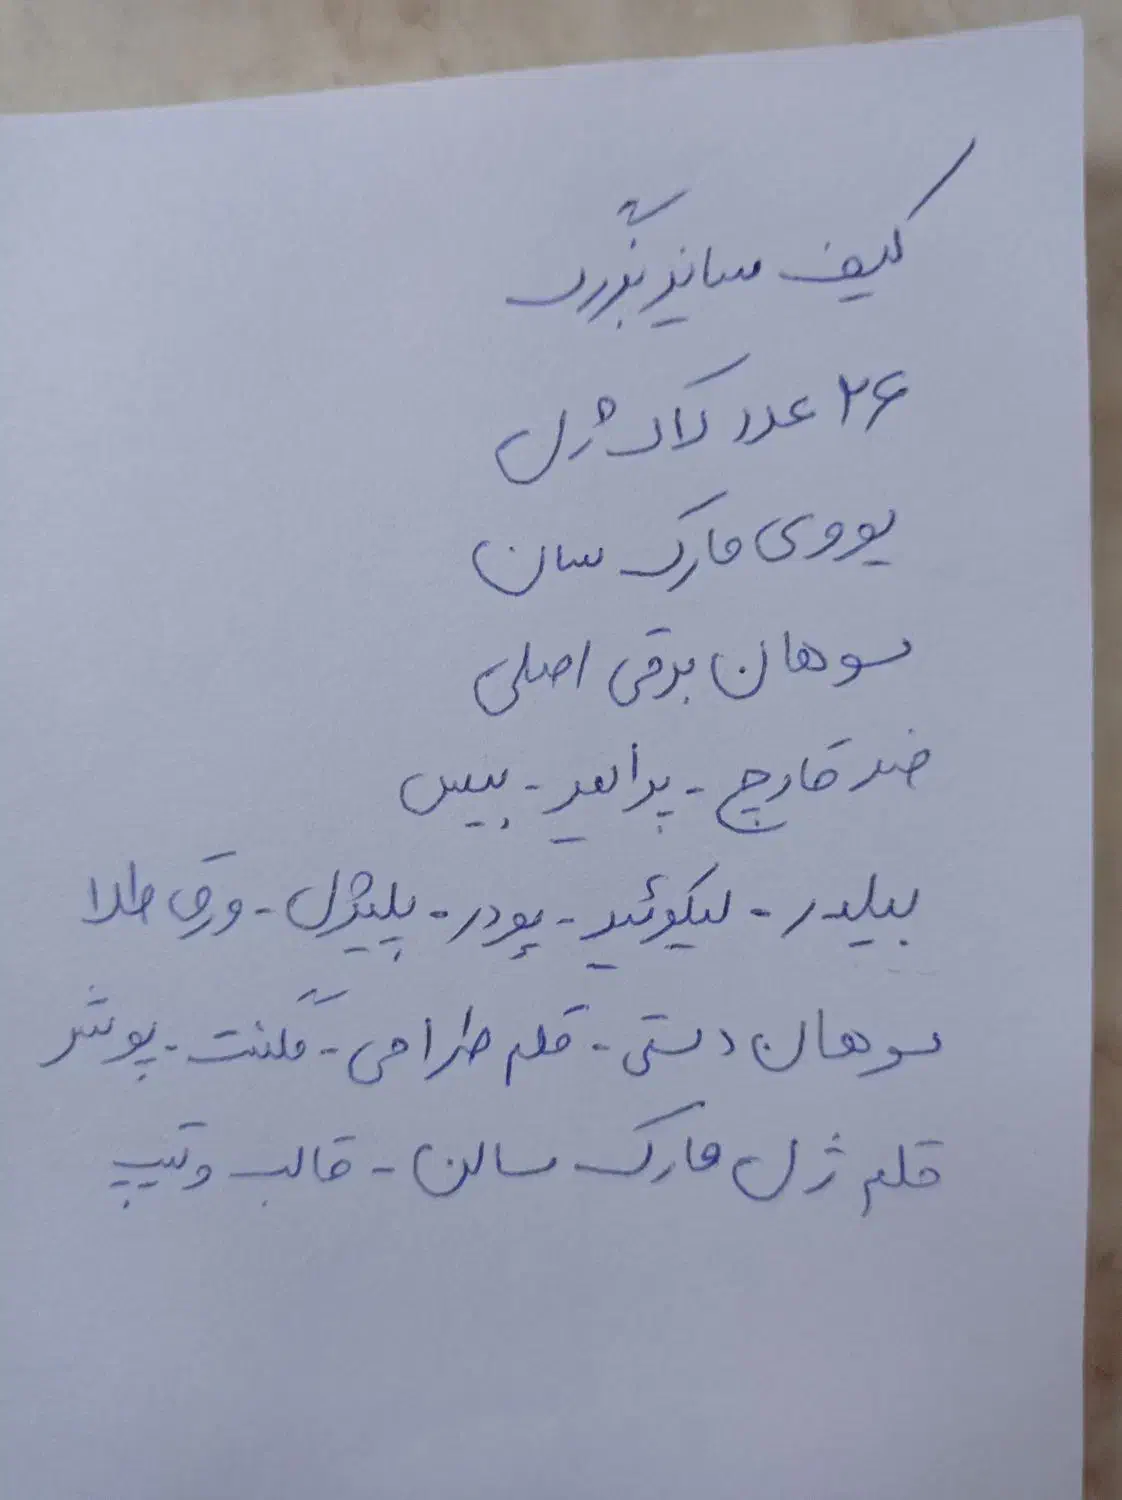 کیف سایز بزرگ
۲۶ عدد لاک ژل
یووی مارک سان
سوهان برقی اصلی
ضد قارچ - پرایمر - بیس
بیلدر - لیکوئید - پودر - پلیژل - ورق طلا
سوهان دستی - قلم طراحی - گلنت - پوشر
قلم ژل مارک سالن - قالب و تیپ